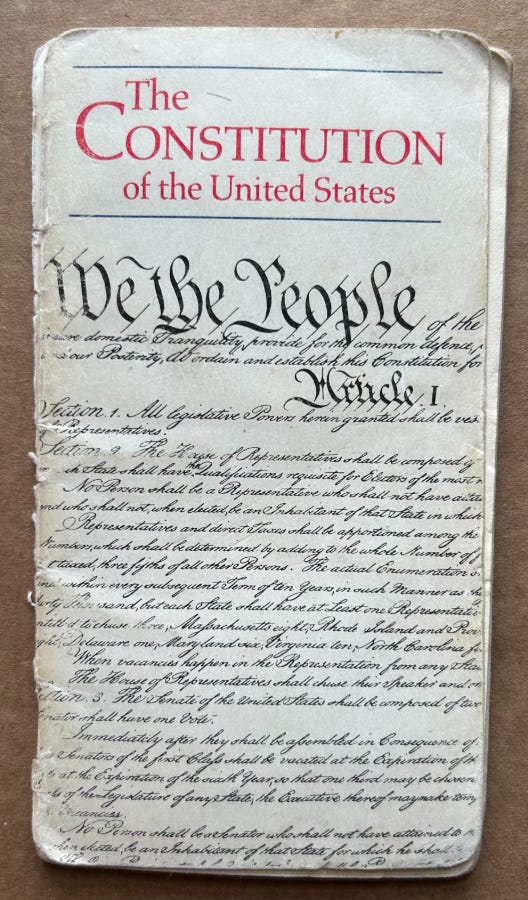 The
CONSTITUTION
of the United States
We the People of the
sure domestic Tranquility, provide for the common defence,
our Posterity, do ordain and establish this Constitution for
Article. I.
Section. 1. All legislative Powers herein granted shall be ves
Representatives.
Section. 2. The House of Representatives shall be composed of
ch State shall have the Qualifications requisite for Electors of the most n
No Person shall be a Representative who shall not have attai
and who shall not, when elected, be an Inhabitant of that State in which
Representatives and direct Taxes shall be apportioned among the
Numbers, which shall be determined by adding to the whole Number of f
not taxed, three fifths of all other Persons. The actual Enumeration s
and within every subsequent Term of ten Years, in such Manner as the
rty Thousand, but each State shall have at Least one Representativ
entitled to chuse three, Massachusetts eight, Rhode Island and Prov
ght, Delaware one, Maryland six, Virginia ten, North Carolina fi
When vacancies happen in the Representation from any State
The House of Representatives shall chuse their Speaker and o
Section. 3. The Senate of the United States shall be composed of two
Senator shall have one Vote.
Immediately after they shall be assembled in Consequence of
Senators of the first Class shall be vacated at the Expiration of th
at the Expiration of the sixth Year, so that one third may be chosen
of the Legislature of any State, the Executive thereof may make temp
Vacancies.
No Person shall be a Senator who shall not have attained to th
when elected, be an Inhabitant of that State for which he shall